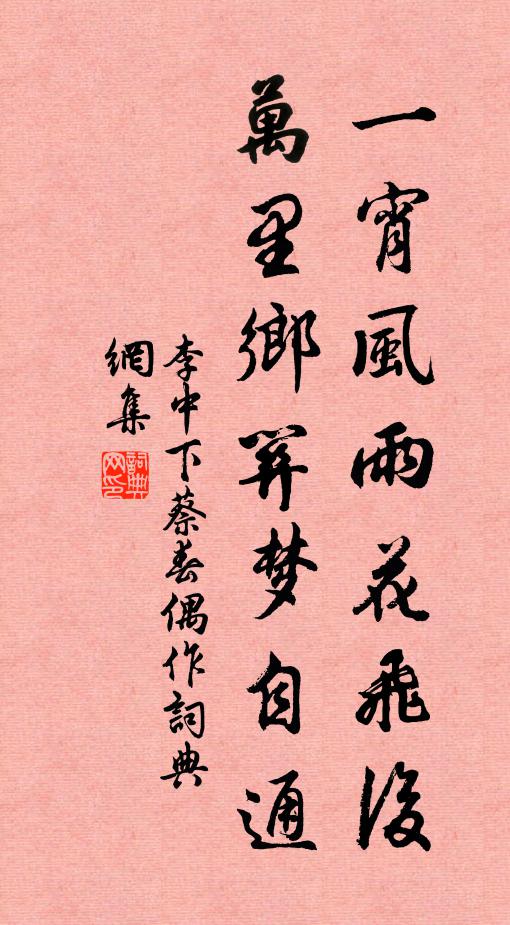 一宵風雨花飛後
萬里鄉關梦自通
李中下蔡春偶作詞典
網集
詞典
网印